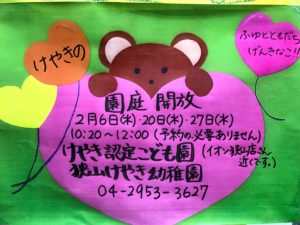 けやきの
ふゆとともだち
げんきなこ!!
園庭 開放
2月6日(木)・20日(木)・27日(木)
10:20～12:00 (予約の必要ありません)
けやき認定こども園 (イオン狭山店さん
近くです。)
狭山けやき幼稚園
04-2953-3627